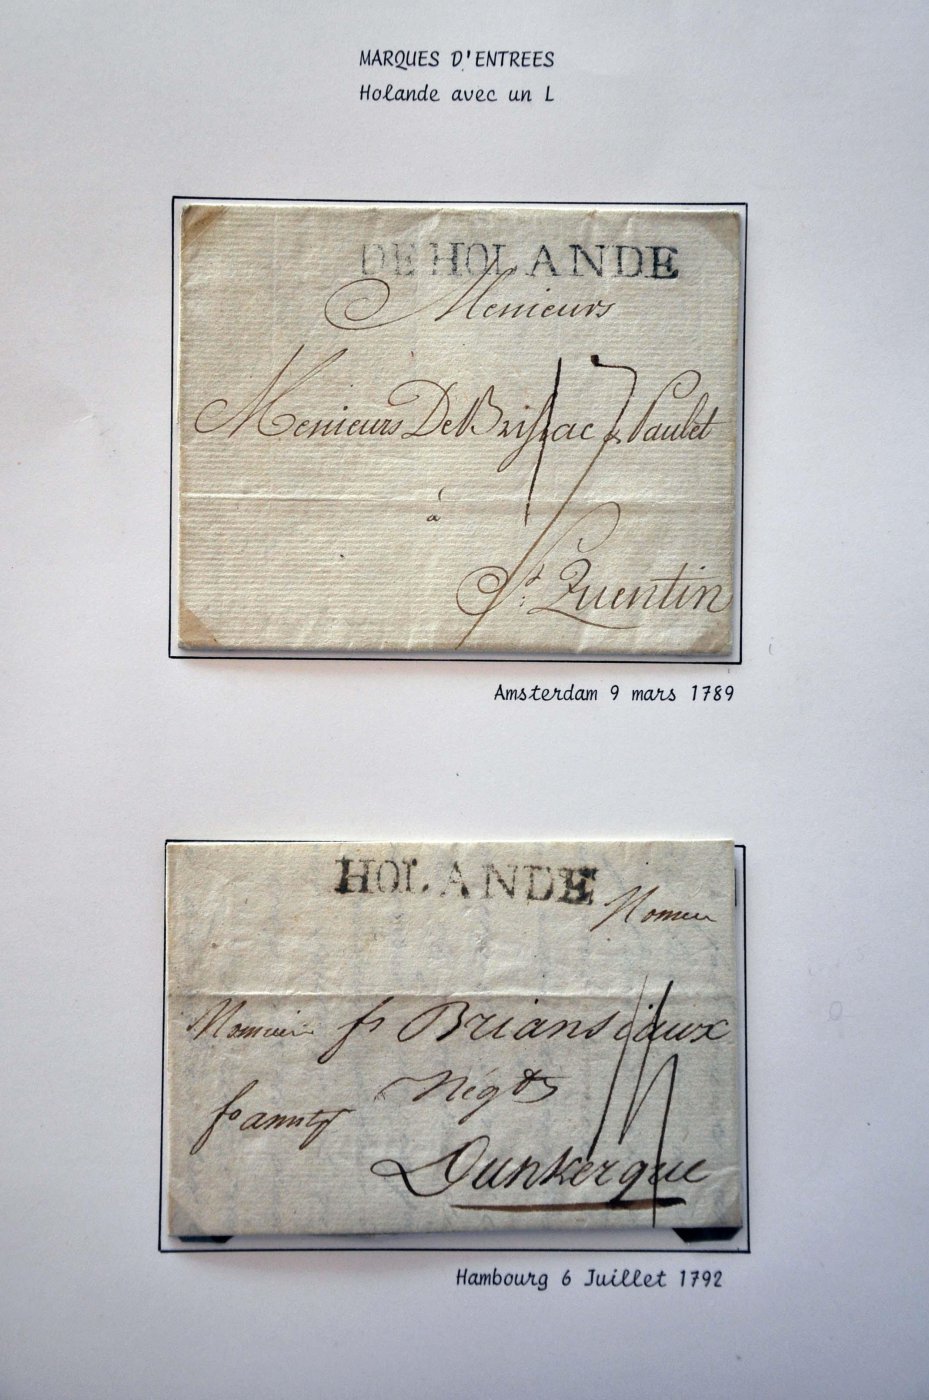 MARQUES D'ENTREES
Holande avec un L
DE HOLANDE
Mesieurs
Mesieurs De Brissac & Paulet
17
à
St. Quentin
Amsterdam 9 mars 1789
HOLANDE
fs Briansiaux
Négts
fo
Dunkerque
Hambourg 6 Juillet 1792